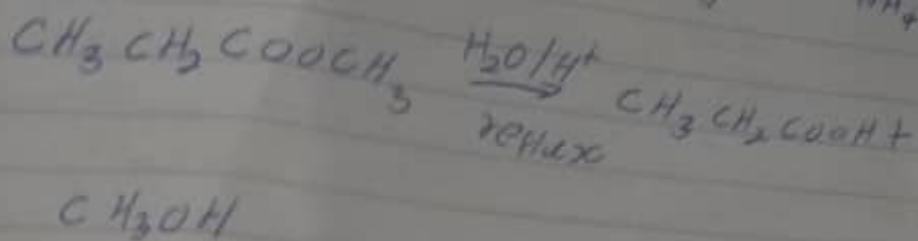 CH₃CH₂COOCH₃ H₂O/H⁺ → CH₃CH₂COOH +
CH₃OH